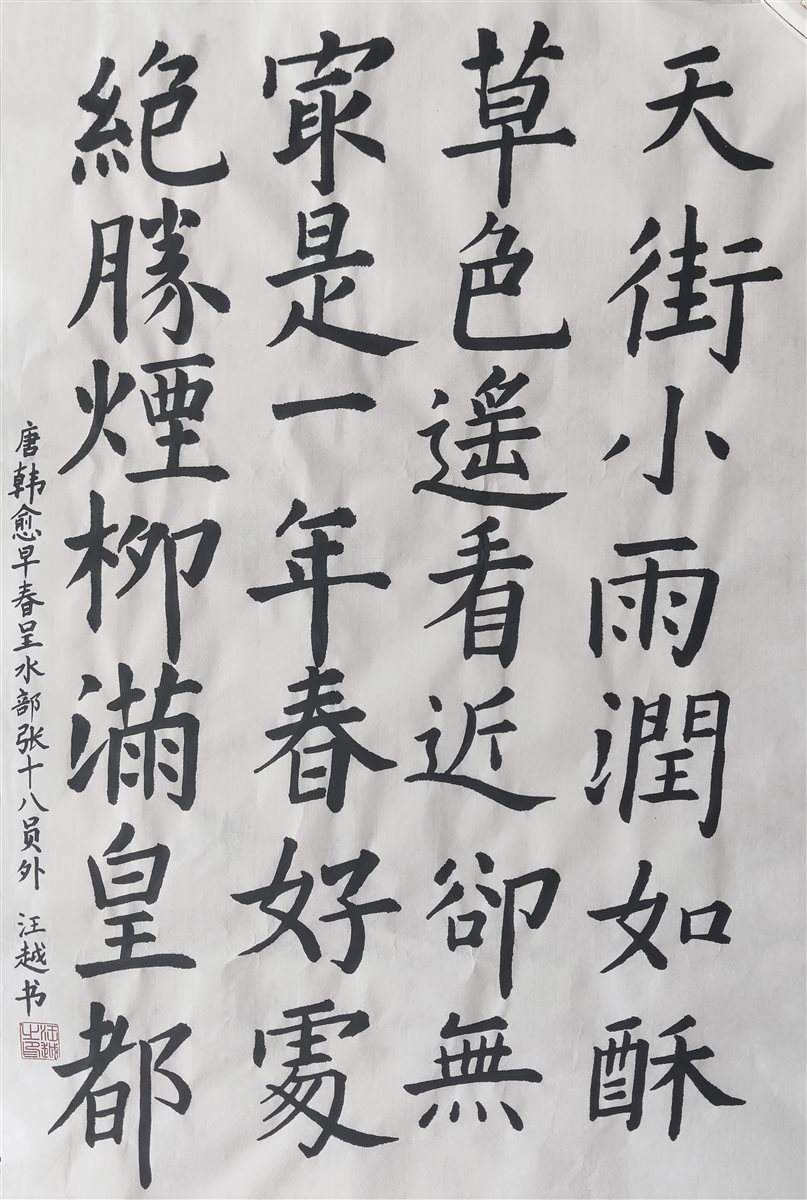 天街小雨潤如酥
草色遥看近卻無
冣是一年春好處
絕勝煙柳滿皇都
唐韩愈早春呈水部张十八员外 汪越书
汪越之印